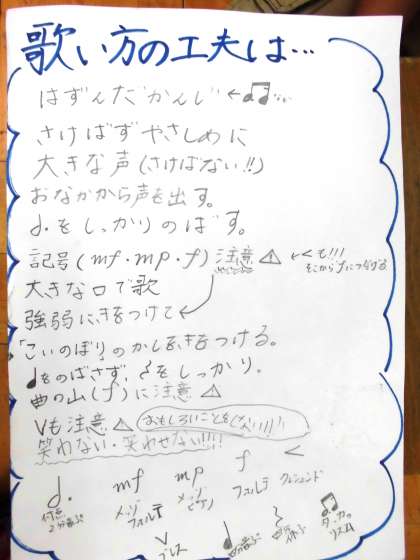 歌い方の工夫は…
はずんだかんじ ←♫
さけばずやさしめに
大きな声(さけばない!!)
おなかから声を出す。
𝅗𝅥.をしっかりのばす。
記号(mf・mp・f)注意⚠ ←<も!!!
そこからfにつなげる
大きな口で歌
強弱にきをつけて
「こいのぼり」のかしをきをつける。
♩をのばさず、𝄽をしっかり。
曲の山(f)に注意⚠
Vも注意⚠ おもしろいことをしない!!
笑わない・笑わせない!!!!
𝅗𝅥. mf mp f <
付点2分音ぷ メッゾフォルテ メッゾピアノ フォルテ クレシェンド
V ♩ 𝄽 ♫
ブレス 4分音ぷ 4分休ふ タッカのリズム